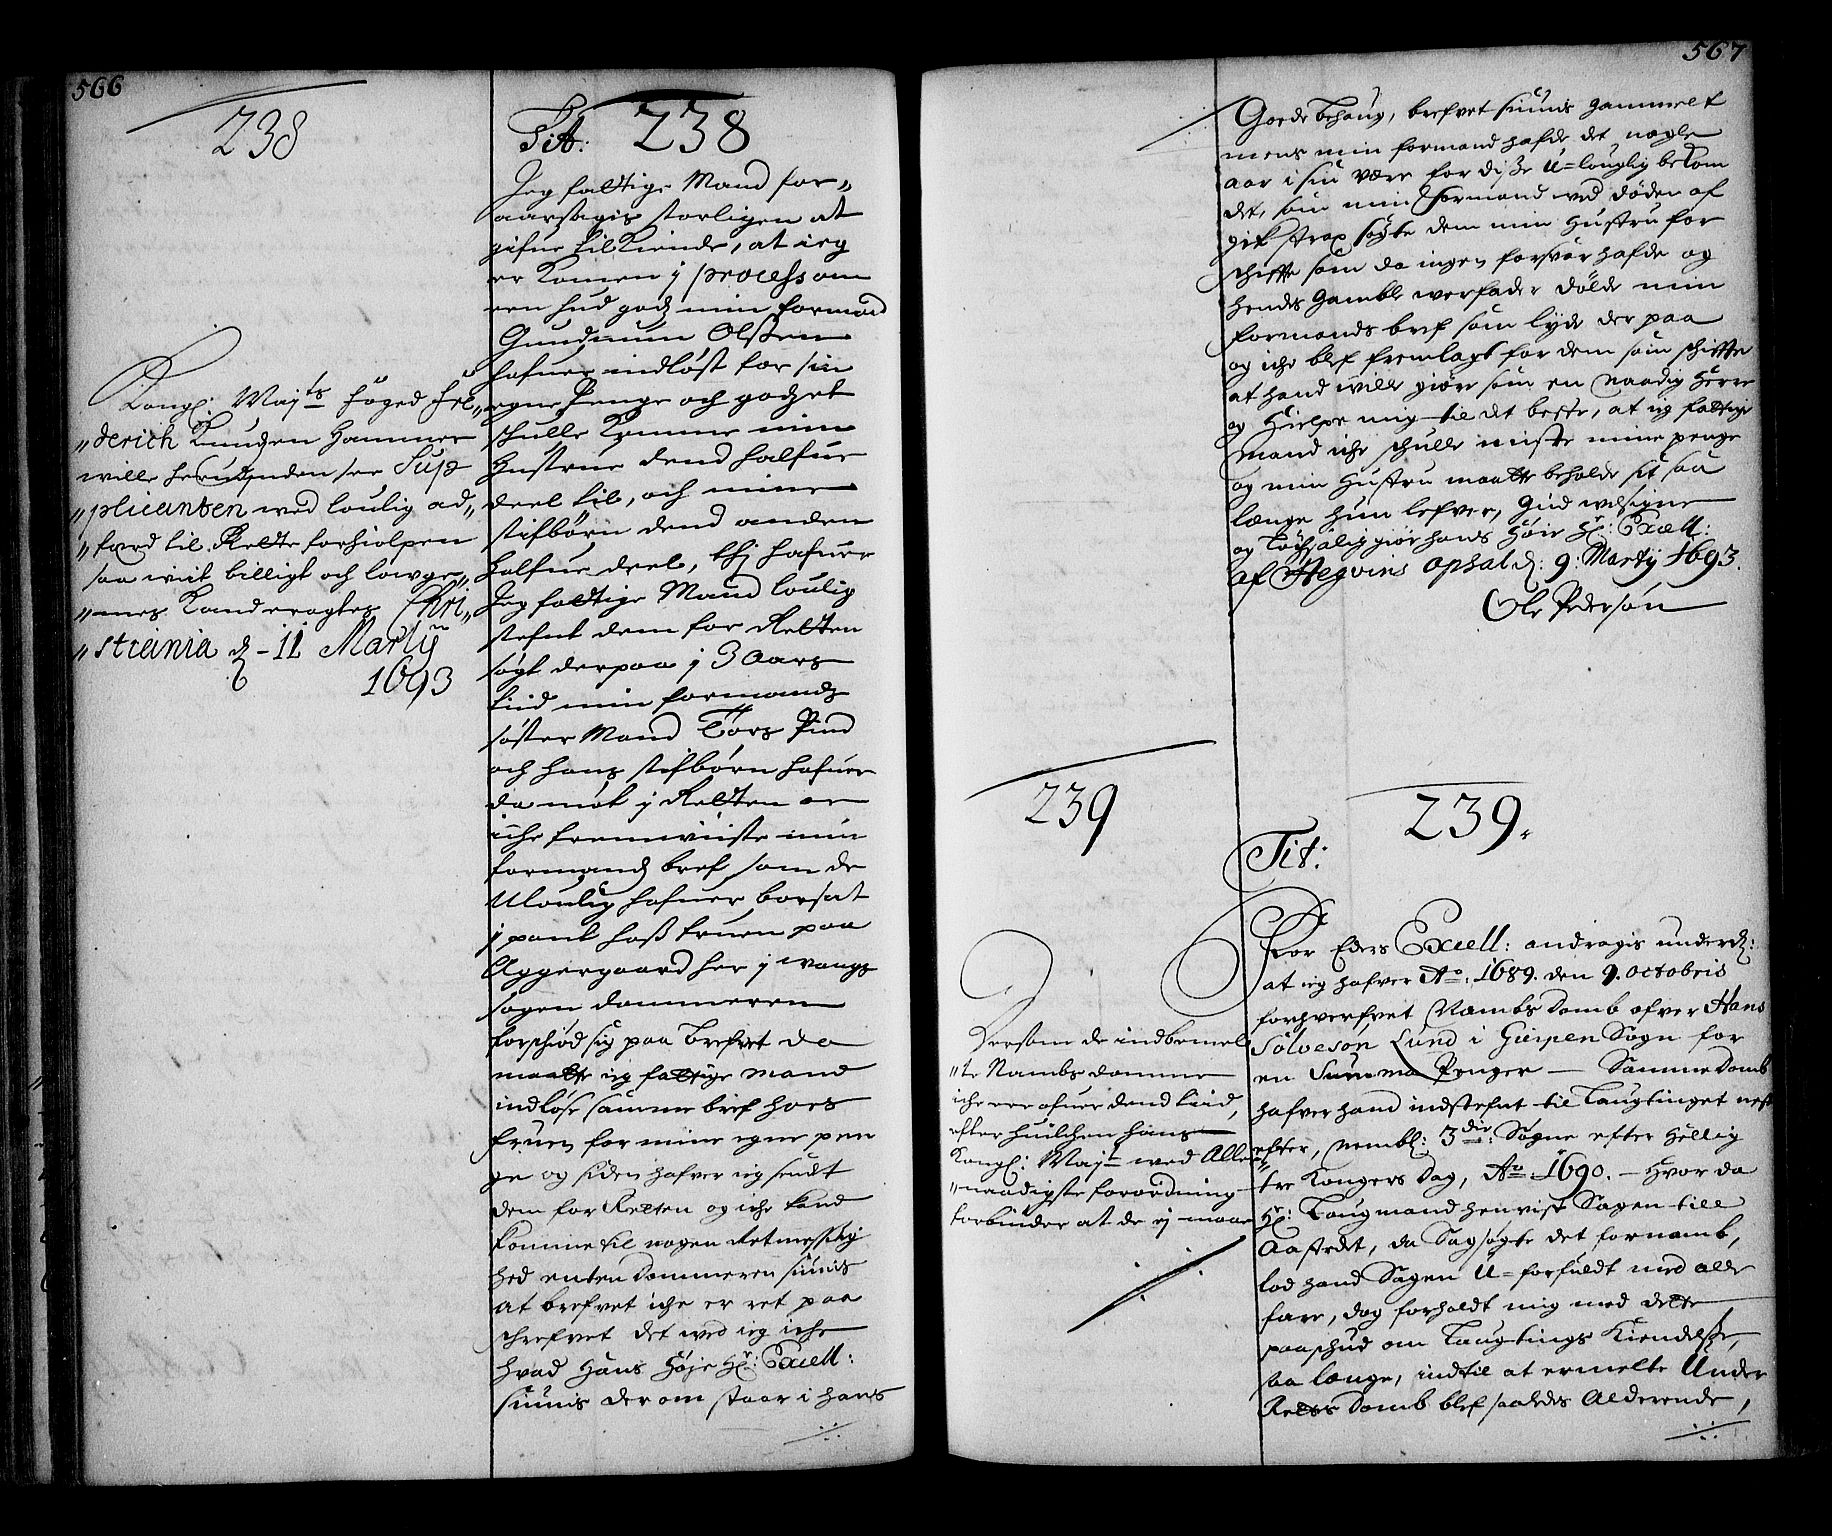 566
238
Kongl: Maÿts foged Fri„
„derich Knudsen Hammer
wille herudinden see Sup
„plicanten med loulig ad„
„færd til Rette forhiolpen
saa wit billigt och lowge„
„mes Kand eragtes Chri„
„stiania d: 11 Martÿ
1693
Tit: 238
Jeg fattige Mand for„
aarsagis storligen at
gifue tilKiende, at ieg
er Komen j process om
een hud godz min formand
Gundmun Olssen
hafuer indløst for sin
egne Penge och godzet
schulle Komme min
Hustrue dend halfue
deel til, och mine
stifbørn dend anden
halfue deel, thj hafuer
Jeg fattige Mand loulig
stefnt dem for Retten
søgt derpaa j 3 Aars
tiid min formands
søster Mand Tors Pind
och hans stifbørn hafuer
da møt j Retten oc
iche fremwiiste min
formands bref, som de
Uloulig hafuer borsat
j pant hoss fruen paa
Aggergaard her j wangs
sogen dommeren
forschiød sig paa brefvet da
maatte ieg fattige mand
indløse samme bref hoes
fruen for mine egne pen
ge og siden hafver ieg sendt
dem for Retten og iche kand
komme til nogen Retmessig
hed enten dommeren siunis
at brefvet iche er ret paa
schrefvet det wed ieg iche
hvad Hans Høje Hr: Excell:
siunis der om staar i hans
567
Goede behaug, brefvet siunis gammelt
mens min formand hafde det nogle
aar i sin være for disse U=louglig bekom
det, som min Formand ved døden af
gik strax søgte dem min Hustru for
schiffte som da ingen forsvar hafde og
hendes gamble werfader dølde min
formands bref som lyde der paa
og iche blef fremlagt for dem som schiffte
at hand wille giøre som en naadig Herre
og Hielpe mig til det beste, at ieg fattige
Mand iche schulle miste mine penge
og min Hustru maatte beholde sit saa
længe hun lefver, Gud welsigne
og Lychsalig giør hans Høje Hr: Excell:
af Hegvins ophal d: 9: Martÿ 1693.
Ole Pedersøn
239
Dersom de indbemel
„te Nambsdomme
iche ere ofuer dend tiid,
efter huilchen hans
Kongl: Mayt: med Aller„
„naadigste forordning
forbinder at de ej maae
239.
Tit:
For Eders Excell: andragis underd:
at ieg hafver Ao: 1689. den 9. octobris
forhverfvet Nambs Domb ofver Hans
Solvesøn Lund i Gierpen Sogn for
en Summa Penger — Samme Domb
hafver hand indstefnt til Laugtinget nest
efter, nembl: 3die Sogne efter Hellig
tre Kongers Dag, Ao 1690. — Hvor da
Hr: Laugmand henvist Sagen till
Aastedet, da Sagsøgte det fornamb,
lod hand Sagen U=forfuldt med alle
fare, dog forholdt mig med dette
paaschud om Laugtings Kiendelsse,
saa længe, indtil at ermelte Under
Retts Domb blef saaledes Alderende,